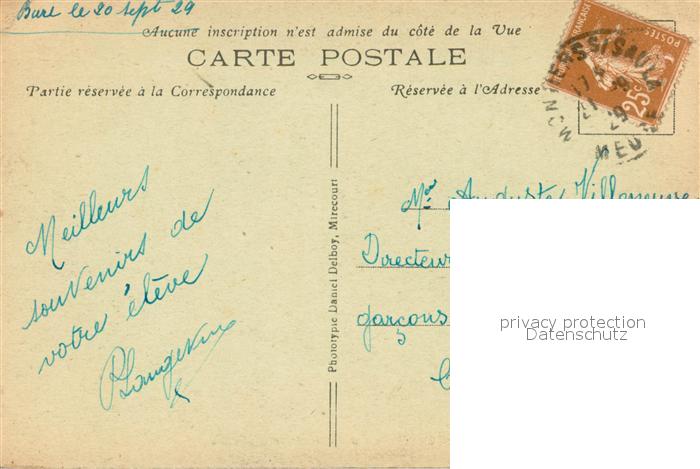 Bure le 20 sept 29
Aucune inscription n'est admise du côté de la Vue
CARTE POSTALE
Partie réservée à la Correspondance
Réservée à l'Adresse
FRANÇAISE
POSTES
25c
MEUSE
Meilleurs
souvenirs de
votre élève
Phototypie Daniel Delboy, Mirecourt
Mr Auguste Villeneuve
Directeur
garçons
privacy protection
Datenschutz